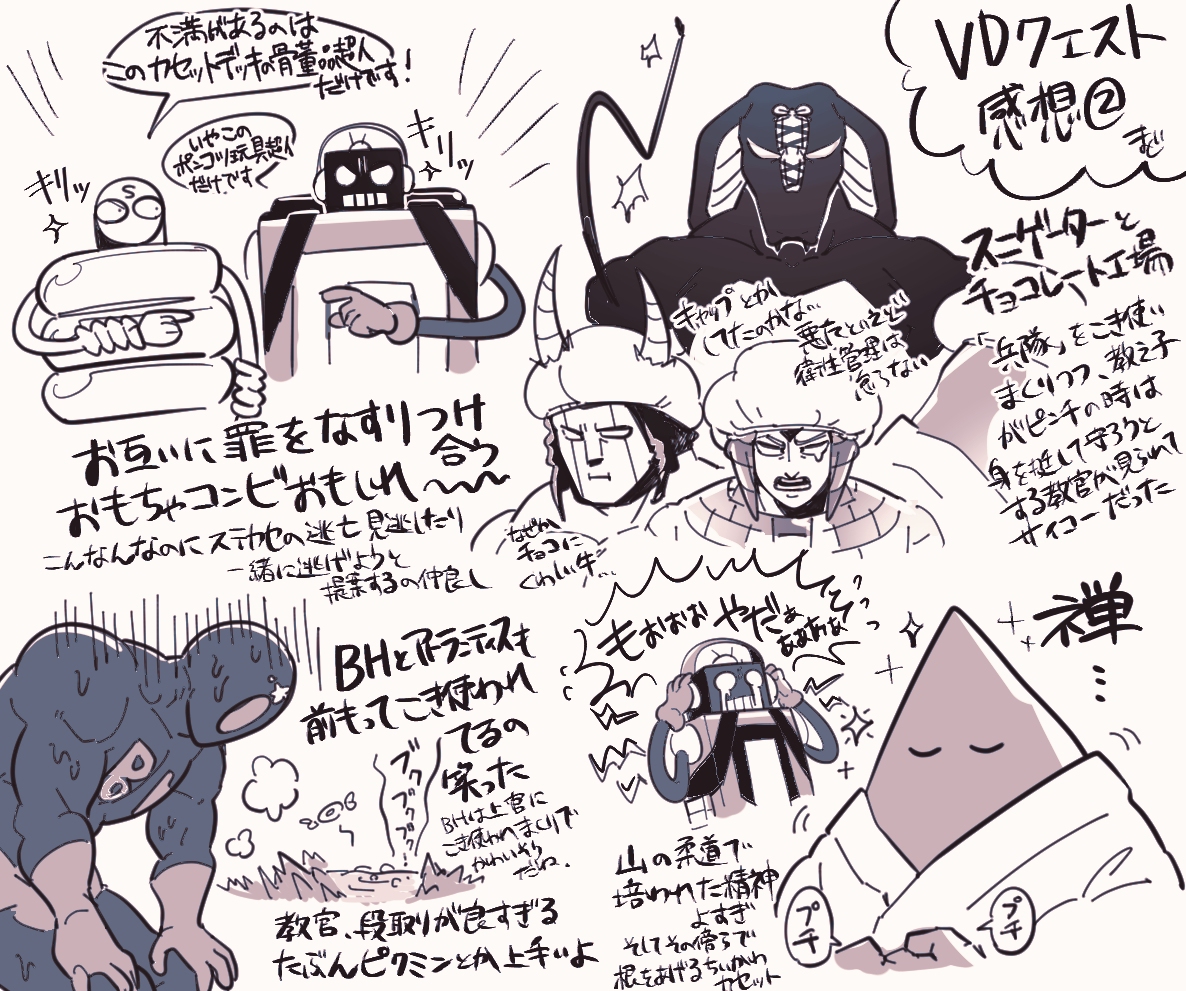 VDクエスト
感想②
まじ
不満があるのは
このカセットデッキの骨董品超人
だけです!
いやこの
ポンコツ玩具超人
だけです
キリッ
キリッ
お互いに罪をなすりつけ
合う
おもちゃコンビおもしれ〜〜
こんなんなのにステカセの逃亡見逃したり
一緒に逃げようと
提案するの仲良し
スニゲーターと
チョコレート工場
兵隊をこき使い
まくりつつ、教え子
がピンチの時は
身を挺して守ろうと
する教官が見られて
サイコーだった
キャップとか
してたのかな…
悪魔といえど
衛生管理は
怠らない
なぜか
チョコに
くわしい牛…
BHとアトランティスも
前もってこき使われ
てるの
笑った
BHは上官に
こき使われまくりで
かわいそう
だね.
ブクブクブク…
教官、段取りが良すぎる
たぶんピクミンとか上手いよ
もおおお やだぁ
あああぁ!
山の柔道で
培われた精神
よすぎ
そしてその傍らで
根をあげるちいかわ
カセット
禅…
プチ
プチ